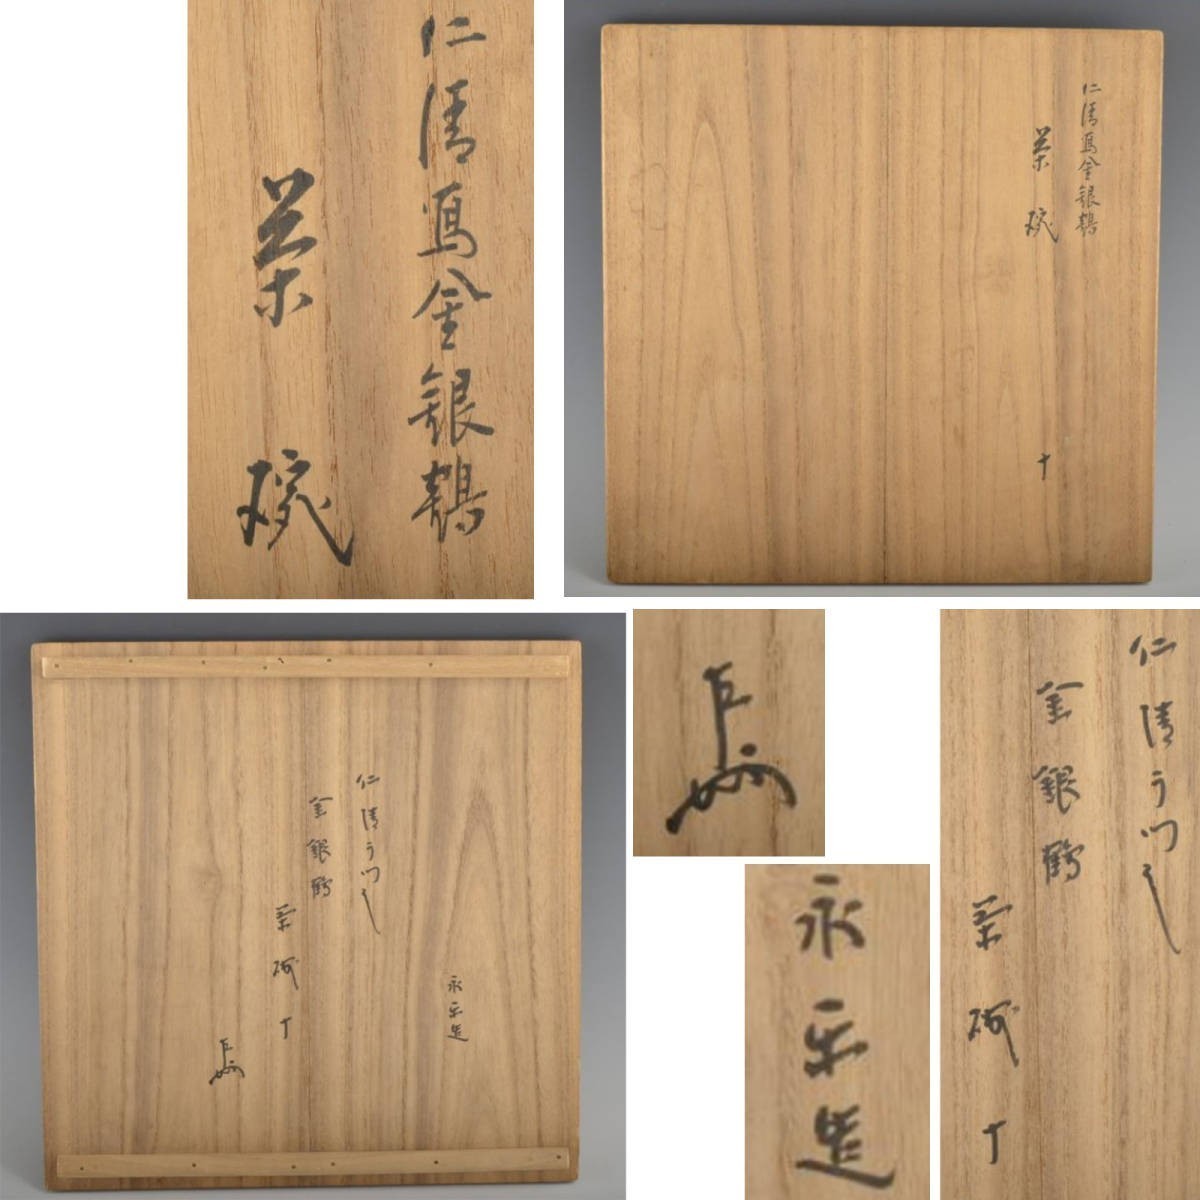 仁清写金銀鶴
茶碗
仁清写金銀鶴
茶碗
十
永楽造
仁清うつし
金銀鶴
茶碗
十
永楽造
仁清うつし
金銀鶴
茶碗
十